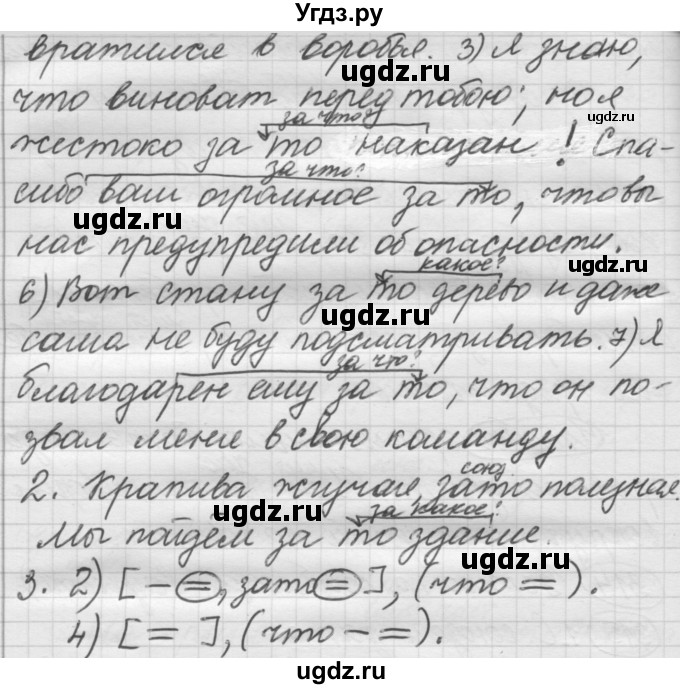 Угдз.ру
вратился в воробья. 3) Я знаю,
что виноват перед тобою; но я
за что?
жестоко за то наказан! Спа-
за что?
сибо вам огромное за то, что вы
нас предупредили об опасности.
какое?
6) Вот стану за то дерево и даже
сама не буду подсматривать. 7) Я
за что?
благодарен ему за то, что он по-
звал меня в свою команду.
союз
2. Крапива жгучая, зато полезная.
за какое?
Мы пойдем за то здание.
3. 2) [ - =, зато = ], (что =).
4) [ = ], (что - =).
ugdz.ru
ugdz.ru
ugdz.ru
ugdz.ru
ugdz.ru
ugdz.ru
ugdz.ru
ugdz.ru
ugdz.ru
ugdz.ru
ugdz.ru
ugdz.ru
ugdz.ru
ugdz.ru